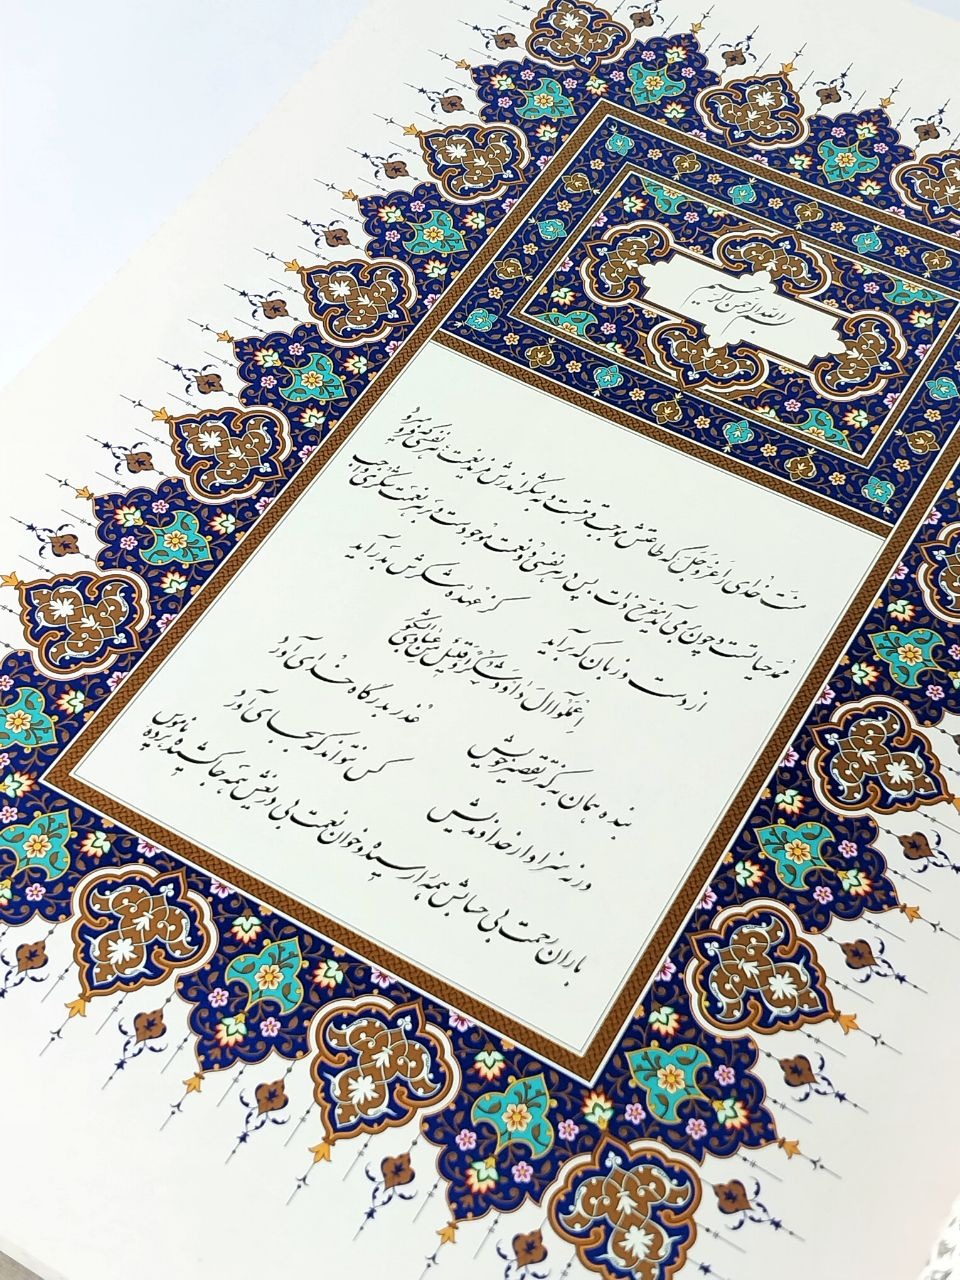 بسم الله الرحمن الرحیم
منت خدای را عز و جل که طاعتش موجب قربت است و به شکر اندرش مزید نعمت هر نفسی که فرو می‌رود
ممد حیات است و چون بر می‌آید مفرح ذات پس در هر نفسی دو نعمت موجود است و بر هر نعمت شکری واجب
از دست و زبان که برآید
کز عهده شکرش بدر آید
اِعْمَلُوا آلَ داوُدَ شُکْراً وَ قَلِیلٌ مِنْ عِبادِیَ الشَّکُورُ
بنده همان به که ز تقصیر خویش
عذر بدرگاه خدای آورد
ورنه سزاوار خداوندیش
کس نتواند که بجای آورد
باران رحمت بی حسابش همه را رسیده و خوان نعمت بی دریغش همه جا کشیده پرده ناموس